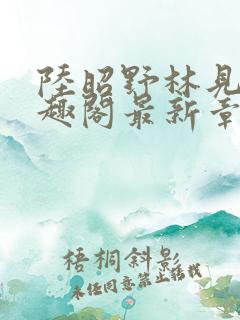 陸昭野林見
趣閣最新章
梧桐斜影
未经同意禁止转载